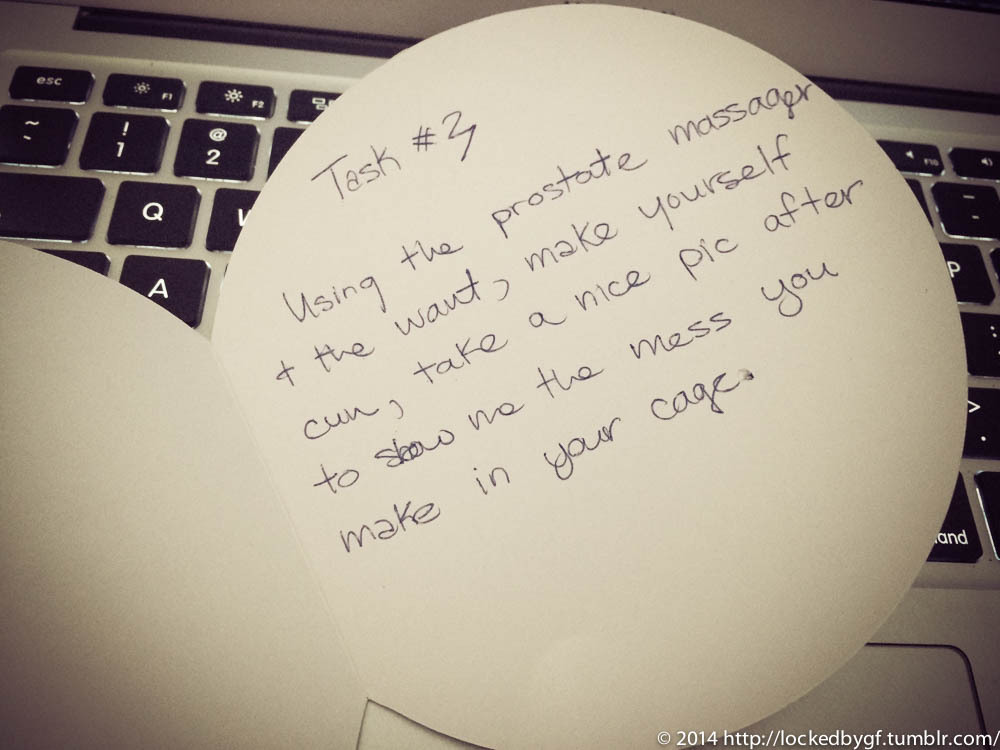 esc
F1
F2
F10
~
!
1
@
2
Q
W
A
P
>
.
and
Task #3
Using the prostate massager
+ the want, make yourself
cum, take a nice pic after
to show me the mess you
make in your cage.
© 2014 http://lockedbygf.tumblr.com/